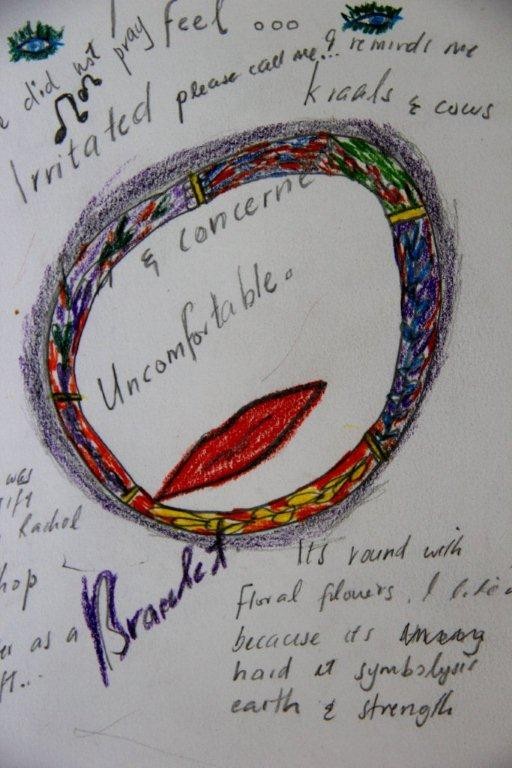 I feel ...
did not pray
Irritated please call me... & reminds me
kraals & cows
& concerne
Uncomfortable.
was
Rachel
hop
as a
Bracelet
Its round with
floral flowers. I
because its
hard it symbolysis
earth & strength